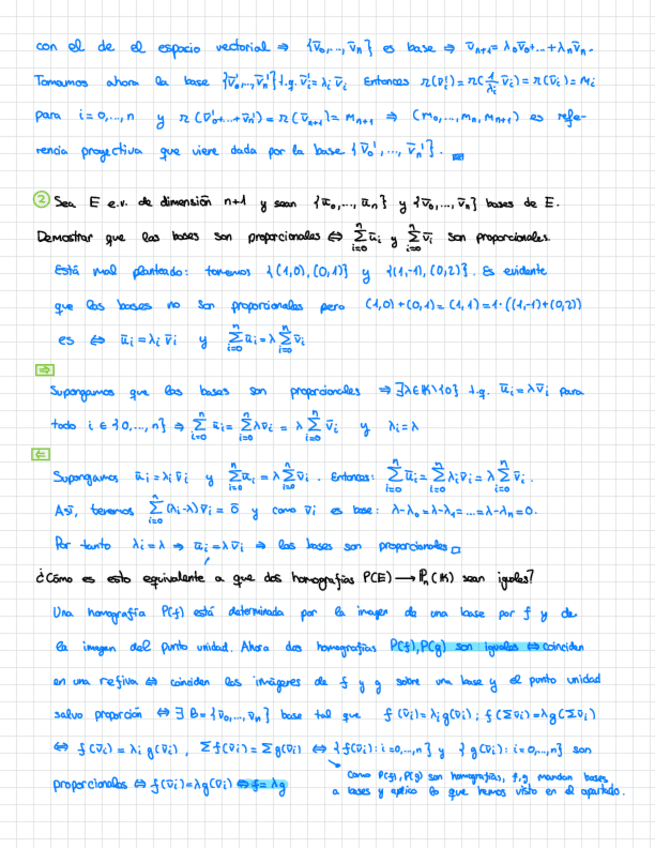 con el de el espacio vectorial ⇒ {v̄₀,...,v̄ₙ} es base ⇒ v̄ₙ₊₁= λ₀v̄₀+...+λₙv̄ₙ.
Tomamos ahora la base {v̄₀',...,v̄ₙ'} t.q. v̄ᵢ'=λᵢv̄ᵢ Entonces π(v̄ᵢ')=π(1/λᵢ v̄ᵢ)=π(v̄ᵢ)=Mᵢ
para i=0,...,n y π(v̄₀'+...+v̄ₙ')=π(v̄ₙ₊₁)=Mₙ₊₁ ⇒ (M₀,...,Mₙ,Mₙ₊₁) es refe-
rencia proyectiva que viene dada por la base {v̄₀',...,v̄ₙ'}.
② Sea E e.v. de dimensión n+1 y sean {ū₀,...,ūₙ} y {v̄₀,...,v̄ₙ} bases de E.
Demostrar que las bases son proporcionales ⇔ Σᵢ₌₀ⁿ ūᵢ y Σᵢ₌₀ⁿ v̄ᵢ son proporcionales.
Está mal planteado: tomemos {(1,0),(0,1)} y {(1,-1),(0,2)}. Es evidente
que las bases no son proporcionales pero (1,0)+(0,1)=(1,1)=1·((1,-1)+(0,2))
es ⇔ ūᵢ=λᵢv̄ᵢ y Σᵢ₌₀ⁿ ūᵢ=λΣᵢ₌₀ⁿ v̄ᵢ
⇒
Supongamos que las bases son proporcionales ⇒ ∃λ∈K\{0} t.q. ūᵢ=λv̄ᵢ para
todo i∈{0,...,n} ⇒ Σᵢ₌₀ⁿ ūᵢ= Σᵢ₌₀ⁿ λv̄ᵢ = λΣᵢ₌₀ⁿ v̄ᵢ y λᵢ=λ
⇐
Supongamos ūᵢ=λᵢv̄ᵢ y Σᵢ₌₀ⁿ ūᵢ=λΣᵢ₌₀ⁿ v̄ᵢ. Entonces: Σᵢ₌₀ⁿ ūᵢ=Σᵢ₌₀ⁿ λᵢv̄ᵢ=λΣᵢ₌₀ⁿ v̄ᵢ.
Así, tenemos Σᵢ₌₀ⁿ (λᵢ-λ)v̄ᵢ=0̄ y como v̄ᵢ es base: λ-λ₀=λ-λ₁=...=λ-λₙ=0.
Por tanto λᵢ=λ ⇒ ūᵢ=λv̄ᵢ ⇒ las bases son proporcionales □
¿Cómo es esto equivalente a que dos homografías P(E)→Pₙ(K) sean iguales?
Una homografía P(f) está determinada por la imagen de una base por f y de
la imagen del punto unidad. Ahora dos homografías P(f),P(g) son iguales ⇔ coinciden
en una refiva ⇔ coinciden las imágenes de f y g sobre una base y el punto unidad
salvo proporción ⇔ ∃ B={v̄₀,...,v̄ₙ} base tal que f(v̄ᵢ)=λᵢg(v̄ᵢ); f(Σv̄ᵢ)=λg(Σv̄ᵢ)
⇔ f(v̄ᵢ)=λᵢg(v̄ᵢ), Σf(v̄ᵢ)=Σg(v̄ᵢ) ⇔ {f(v̄ᵢ):i=0,...,n} y {g(v̄ᵢ):i=0,...,n} son
proporcionales ⇔ f(v̄ᵢ)=λg(v̄ᵢ) ⇔ f=λg
Como P(f),P(g) son homografías, f,g mandan bases
a bases y aplico lo que hemos visto en el apartado.